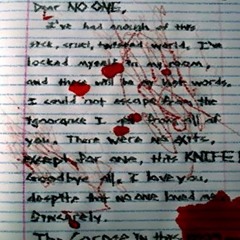 Dear NO ONE,
I've had enough of this
sick, cruel, twisted world. I've
locked myself in my room,
and these will be my last words.
I could not escape from the
ignorance I got from all of
you. There were no exits,
except for one, this KNIFE!
Goodbye all, I love you,
despite that no one loved me.
Sincerely,
The Corpse in this